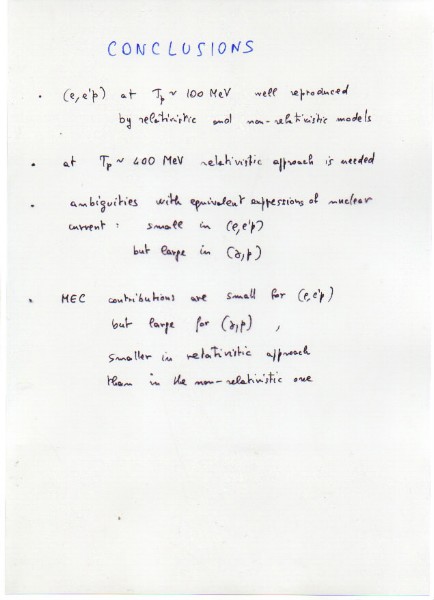 CONCLUSIONS
• (e,e'p) at Tp ~ 100 MeV well reproduced
by relativistic and non-relativistic models
• at Tp ~ 400 MeV relativistic approach is needed
• ambiguities with equivalent expressions of nuclear
current : small in (e,e'p)
but large in (γ,p)
• MEC contributions are small for (e,e'p)
but large for (γ,p) ,
smaller in relativistic approach
than in the non-relativistic one